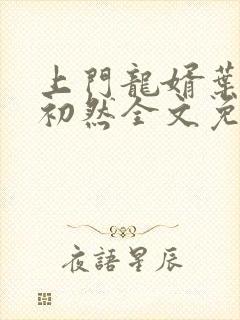 上門龍婿葉
初然全文免
夜語星辰